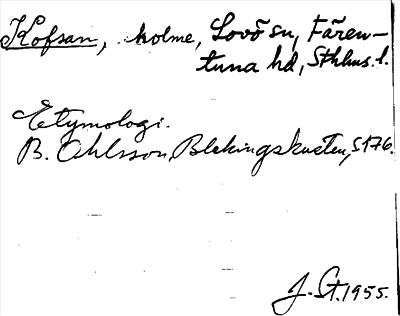 Kofsan, holme, Lovö sn, Fären-
tuna hd, Sthlms. l.
Etymologi.
B. Ohlsson, Blekingskusten, S176.
J. St. 1955.